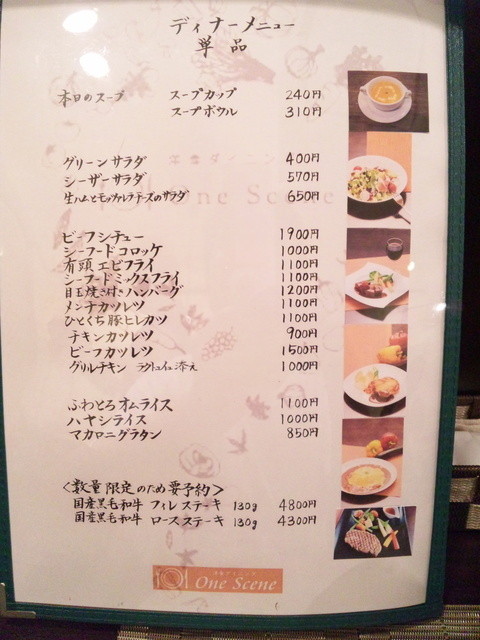 ディナーメニュー
単品
本日のスープ スープカップ 240円
スープボウル 310円
グリーンサラダ 400円
シーザーサラダ 570円
生ハムとモッツァレラチーズのサラダ 650円
One Scene
ビーフシチュー 1900円
シーフードコロッケ 1000円
有頭エビフライ 1100円
シーフードミックスフライ 1100円
目玉焼き付きハンバーグ 1200円
メンチカツレツ 1100円
ひとくち豚ヒレカツ 1100円
チキンカツレツ 900円
ビーフカツレツ 1500円
グリルチキン ラタトゥイユ添え 1000円
ふわとろオムライス 1100円
ハヤシライス 1000円
マカロニグラタン 850円
<数量限定のため要予約>
国産黒毛和牛 フィレステーキ 130g 4800円
国産黒毛和牛 ロースステーキ 130g 4300円
One Scene